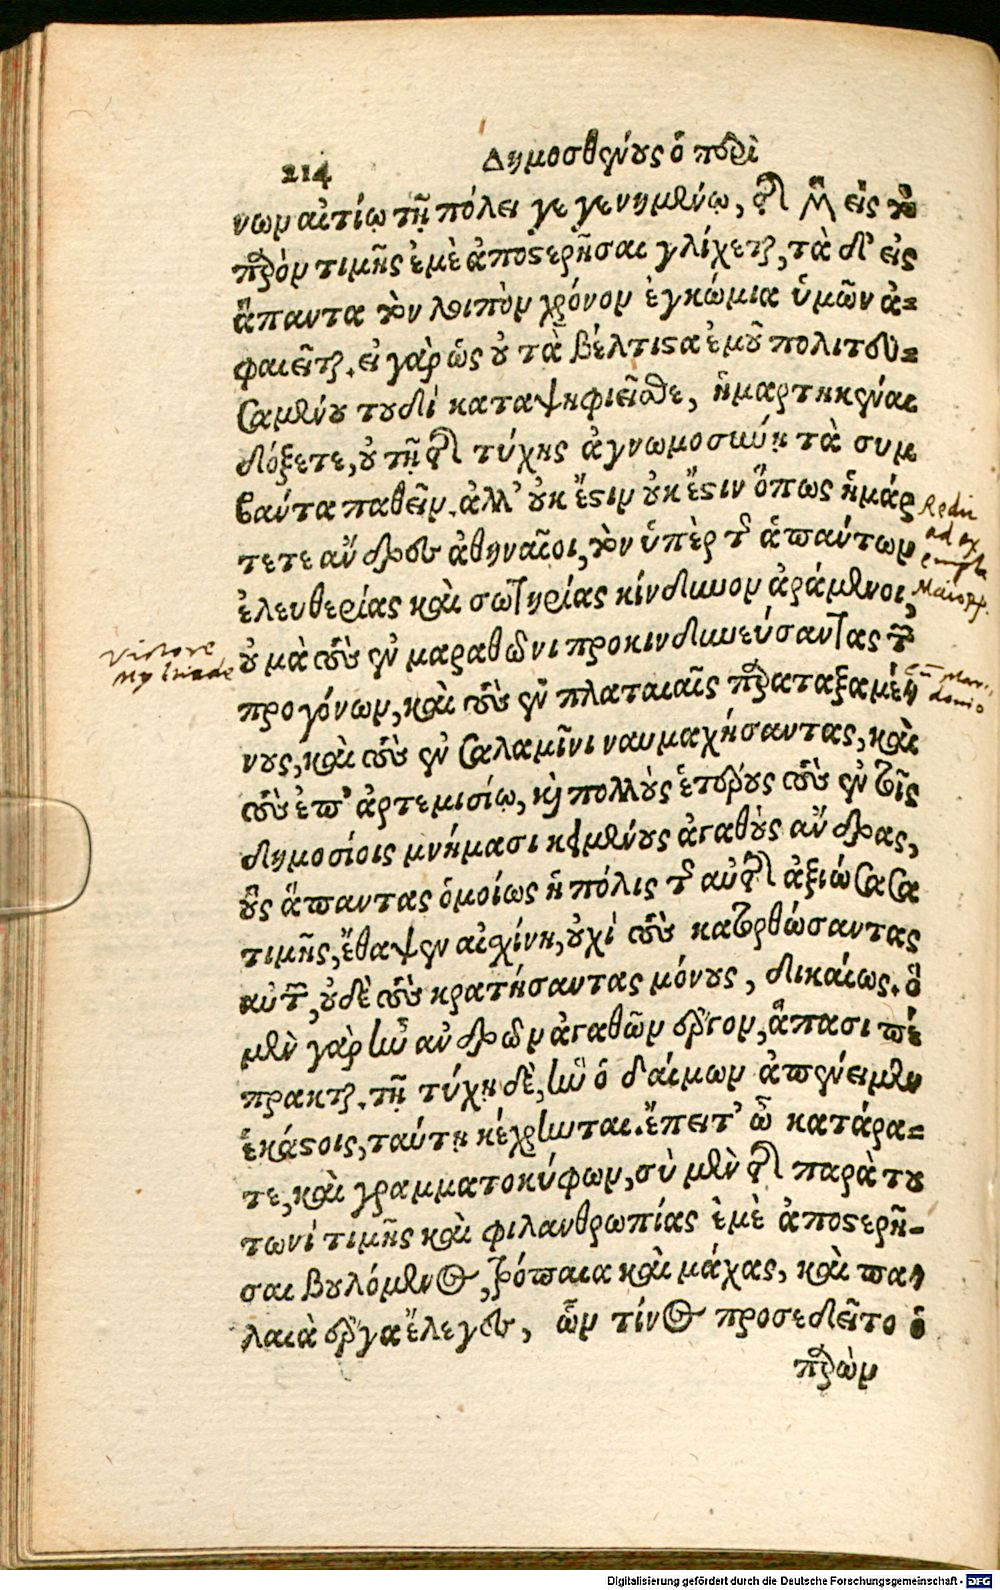 214
Δημοσθένους ὁ περὶ
νων αἰτίῳ τῇ πόλει γεγενημένῳ, τῆς μὲν εἰς τὸ
παρὸν τιμῆς ἐμὲ ἀποστερῆσαι γλίχεται, τὰ δ' εἰς
ἅπαντα τὸν λοιπὸν χρόνον ἐγκώμια ὑμῶν ἀ-
φαιεῖται. εἰ γὰρ ὡς οὐ τὰ βέλτιστα ἐμοῦ πολιτευ-
σαμένου τουδὶ καταψηφιεῖσθε, ἡμαρτηκέναι
δόξετε, οὐ τῇ τῆς τύχης ἀγνωμοσύνῃ τὰ συμ
βάντα παθεῖν. ἀλλ' οὐκ ἔστιν οὐκ ἔστιν ὅπως ἡμάρ
τετε ἄνδρες ἀθηναῖοι, τὸν ὑπὲρ τῆς ἁπάντων
ἐλευθερίας καὶ σωτηρίας κίνδυνον ἀράμενοι,
οὐ μὰ τοὺς ἐν μαραθῶνι προκινδυνεύσαντας τῶν
προγόνων, καὶ τοὺς ἐν πλαταιαῖς παραταξαμέ-
νους, καὶ τοὺς ἐν Σαλαμῖνι ναυμαχήσαντας, καὶ
τοὺς ἐπ' ἀρτεμισίῳ, καὶ πολλοὺς ἑτέρους τοὺς ἐν τοῖς
δημοσίοις μνήμασι κειμένους ἀγαθοὺς ἄνδρας,
οὓς ἅπαντας ὁμοίως ἡ πόλις τῆς αὐτῆς ἀξιώσασα
τιμῆς, ἔθαψεν αἰσχίνη, οὐχὶ τοὺς κατορθώσαντας
αὐτῶν, οὐδὲ τοὺς κρατήσαντας μόνους, δικαίως. ὃ
μὲν γὰρ ἦν ἀνδρῶν ἀγαθῶν ἔργον, ἅπασι πέ
πρακται. τῇ τύχῃ δὲ, ἣν ὁ δαίμων ἀπένειμεν
ἑκάστοις, ταύτῃ κέχρηνται. ἔπειτ' ὦ κατάρα-
τε, καὶ γραμματοκύφων, σὺ μὲν τῆς παρὰ του
τωνὶ τιμῆς καὶ φιλανθρωπίας ἐμὲ ἀποστερῆ-
σαι βουλόμενος, τρόπαια καὶ μάχας, καὶ πα-
λαιὰ ἔργα ἔλεγες, ὧν τίνος προσεδεῖτο ὁ
παρὼν
Victore
ad ex
Digitalisierung gefördert durch die Deutsche Forschungsgemeinschaft - DFG